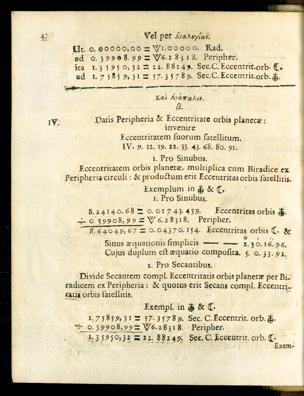 42 Vel per ἀναλογίαν.
Ut. 0.00000,00 = V/1.00000. Rad.
ad 0.39908.99 = V/6.28318. Peripher.
ita 1.35950,32 = 22.88249. Sec. C. Eccentrit-orb. ☾.
ad 1.75859,31 = 57.35789. Sec. C. Eccentrit. orb.
Καὶ ἀνάπαλιν.
β.
IV. Datis Peripheria & Eccentritate orbis planetæ:
invenire
Eccentritatem suorum satellitum.
IV. 9. 12. 19. 22. 33. 43. 68. 80. 91.
1. Pro Sinubus.
Eccentritatem orbis planetæ, multiplica cum Biradice ex
Peripheria circuli: & productum erit Eccentritas orbis satellitis.
Exemplum in & ☾.
1. Pro Sinubus.
8.24140.68 = 0.01743.439. Eccentritas orbis
÷ 0.39908,99 = V/6.28318. Peripher.
8.64049,67 = 0.04370.154. Eccentritas orbis ☾. &
Sinus æquationis simplicis — — 2.30.16.96.
Cujus duplum est æquatio composita. 5. 0.33.92.
2. Pro Secantibus.
Divide Secantem compl. Eccentritatis orbis planetæ per Bi-
radicem ex Peripheria: & quotus erit Secans compl. Eccentri-
tatis orbis satellitis.
Exempl. in & ☾.
1.75859,31 = 57.35789. Sec. C. Eccentrit. orb.
÷ 0.39908,99 = V/6.28318. Peripher.
1.35950,32 = 22.88249. Sec. C. Eccentrit. orb. ☾.
Exem-